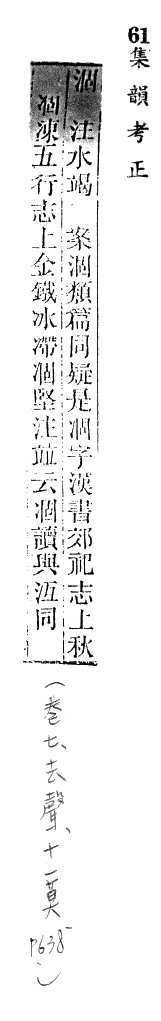 61
集韻考正
涸 注水竭 案涸類篇同疑是凅字漢書郊祀志上秋
涸凍五行志上金鐵冰滯涸堅注竝云涸讀與沍同
(卷七、去聲、十一莫
P638)